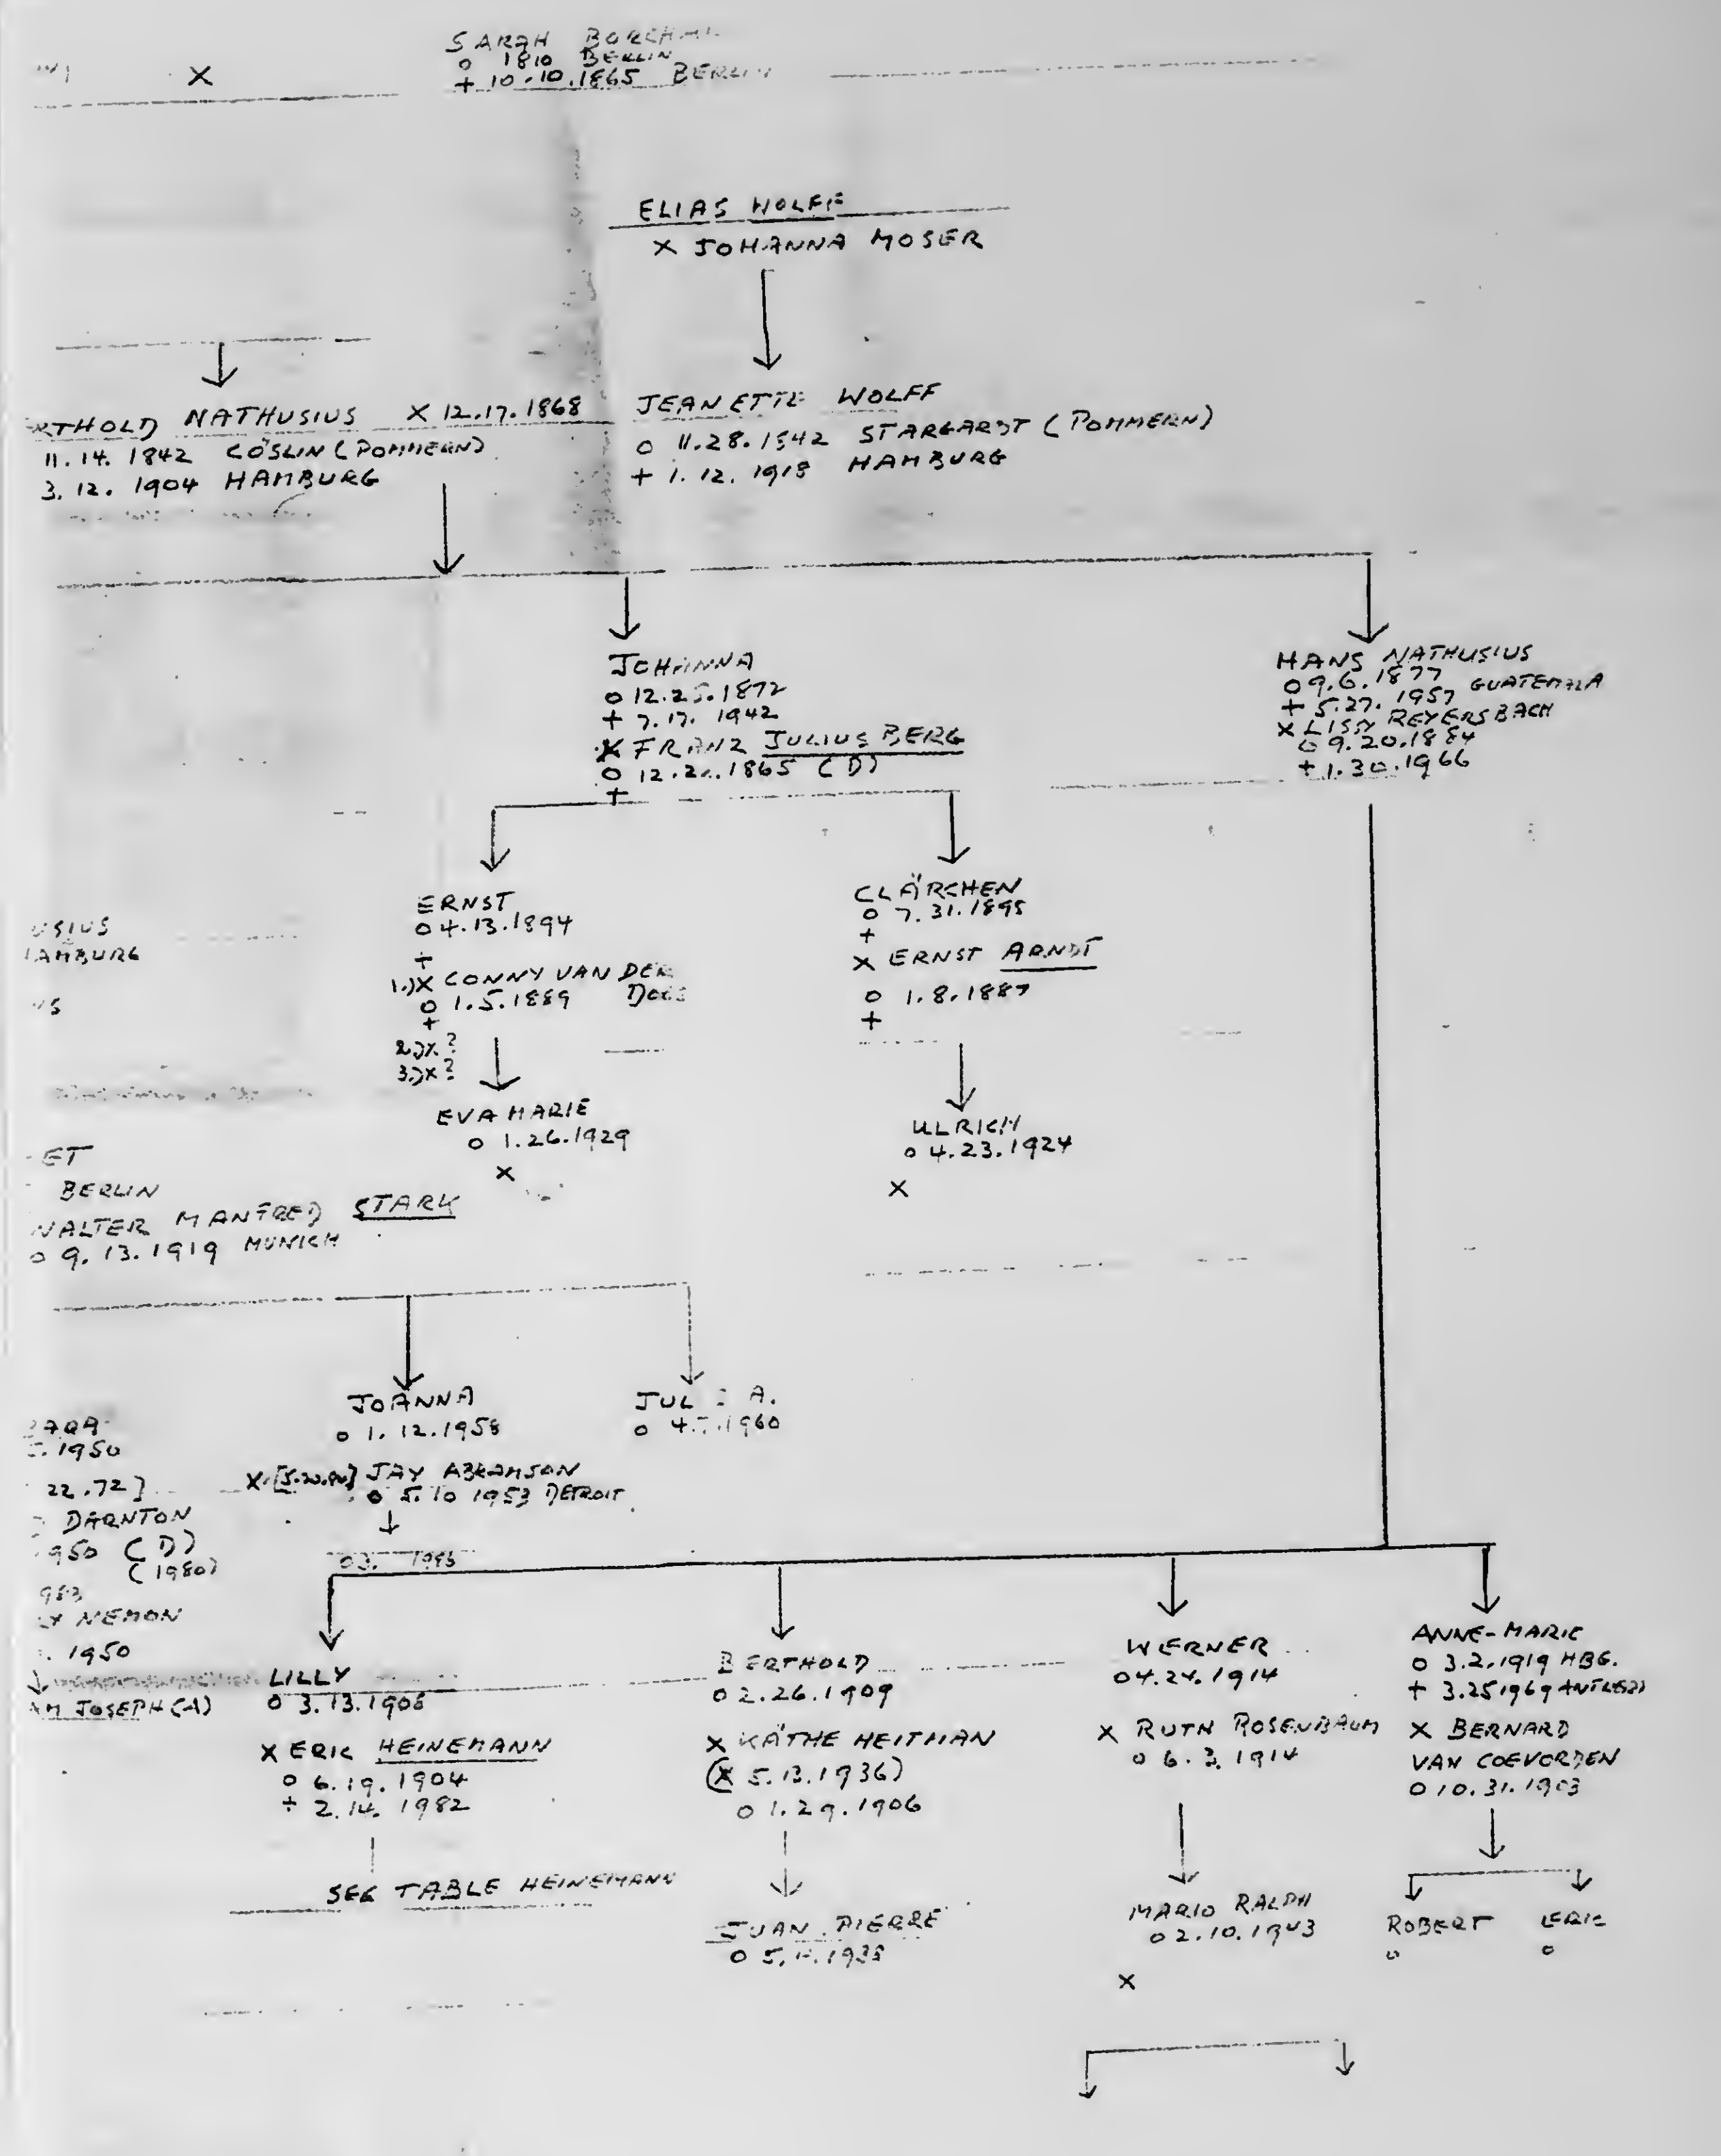 SARAH
o 1810 BERLIN
+ 10.10.1865 BERLIN
X
ELIAS WOLFF
X JOHANNA MOSER
RTHOLD NATHUSIUS X 12.17.1868
11.14. 1842 CÖSLIN (POMMERN)
3. 12. 1904 HAMBURG
JEANETTE WOLFF
o 11.28.1842 STARGARDT (POMMERN)
+ 1. 12. 1918 HAMBURG
JOHANNA
o 12.25.1872
+ 7.17. 1942
X FRANZ JULIUS BERG
o 1865 (D)
+
HANS NATHUSIUS
o 9.6.1877
+ 5.27. 1957 GUATEMALA
X LISSY REYERSBACH
o 9.20.1884
+ 1.30.1966
ERNST
o 4.13.1894
+
1.)X CONNY VAN DER
o 1.5.1889
+
2.)X ?
3.)X ?
EVA MARIE
o 1.26.1929
X
CLÄRCHEN
o 7.31.1895
+
X ERNST ARNDT
o 1.8.1887
+
ULRICH
o 4.23.1924
X
USIUS
HAMBURG
US
ET
BERLIN
WALTER MANFRED STARK
o 9. 13.1919 MUNICH
JOANNA
o 1. 12.1958
JAY ABRAMSON
o 5.10 1953 DETROIT
JULIA.
o 1960
1950
22.72]
DARNTON
950 (D)
(1980)
983
NEMON
1950
AM JOSEPH (A)
LILLY
o 3.13.1908
X ERIC HEINEMANN
o 6.19.1904
+ 2.14. 1982
SEE TABLE HEINEMANN
BERTHOLD
o 2.26.1909
X KÄTHE HEITMAN
(X 5.13.1936)
o 1.29.1906
JUAN PIERRE
WERNER
o 4.24.1914
X RUTH ROSENBAUM
o 6.3.1914
MARIO RALPH
o 2.10.1943
X
ANNE-MARIE
o 3.2.1919 HBG.
+ 3.25 1969
X BERNARD
VAN COEVORDEN
o 10.31.1903
ROBERT
o
ERIC
o